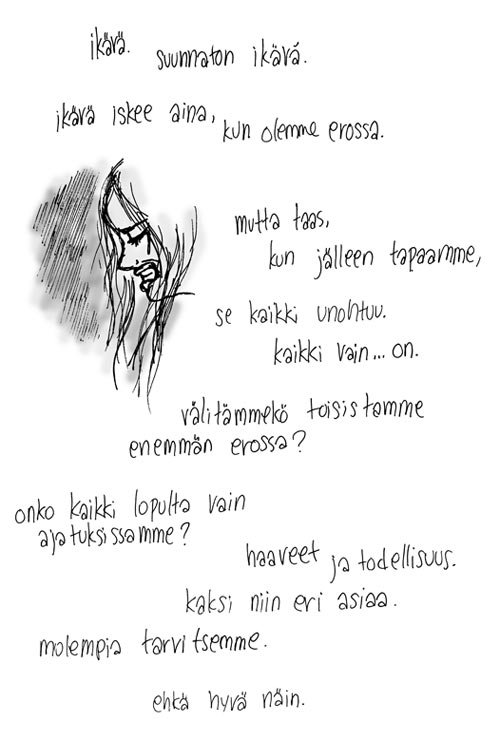 ikävä.
suunnaton ikävä.
ikävä iskee aina,
kun olemme erossa.
mutta taas,
kun jälleen tapaamme,
se kaikki unohtuu.
kaikki vain... on.
välitämmekö toisistamme
enemmän erossa?
onko kaikki lopulta vain
ajatuksissamme?
haaveet ja todellisuus.
kaksi niin eri asiaa.
molempia tarvitsemme.
ehkä hyvä näin.